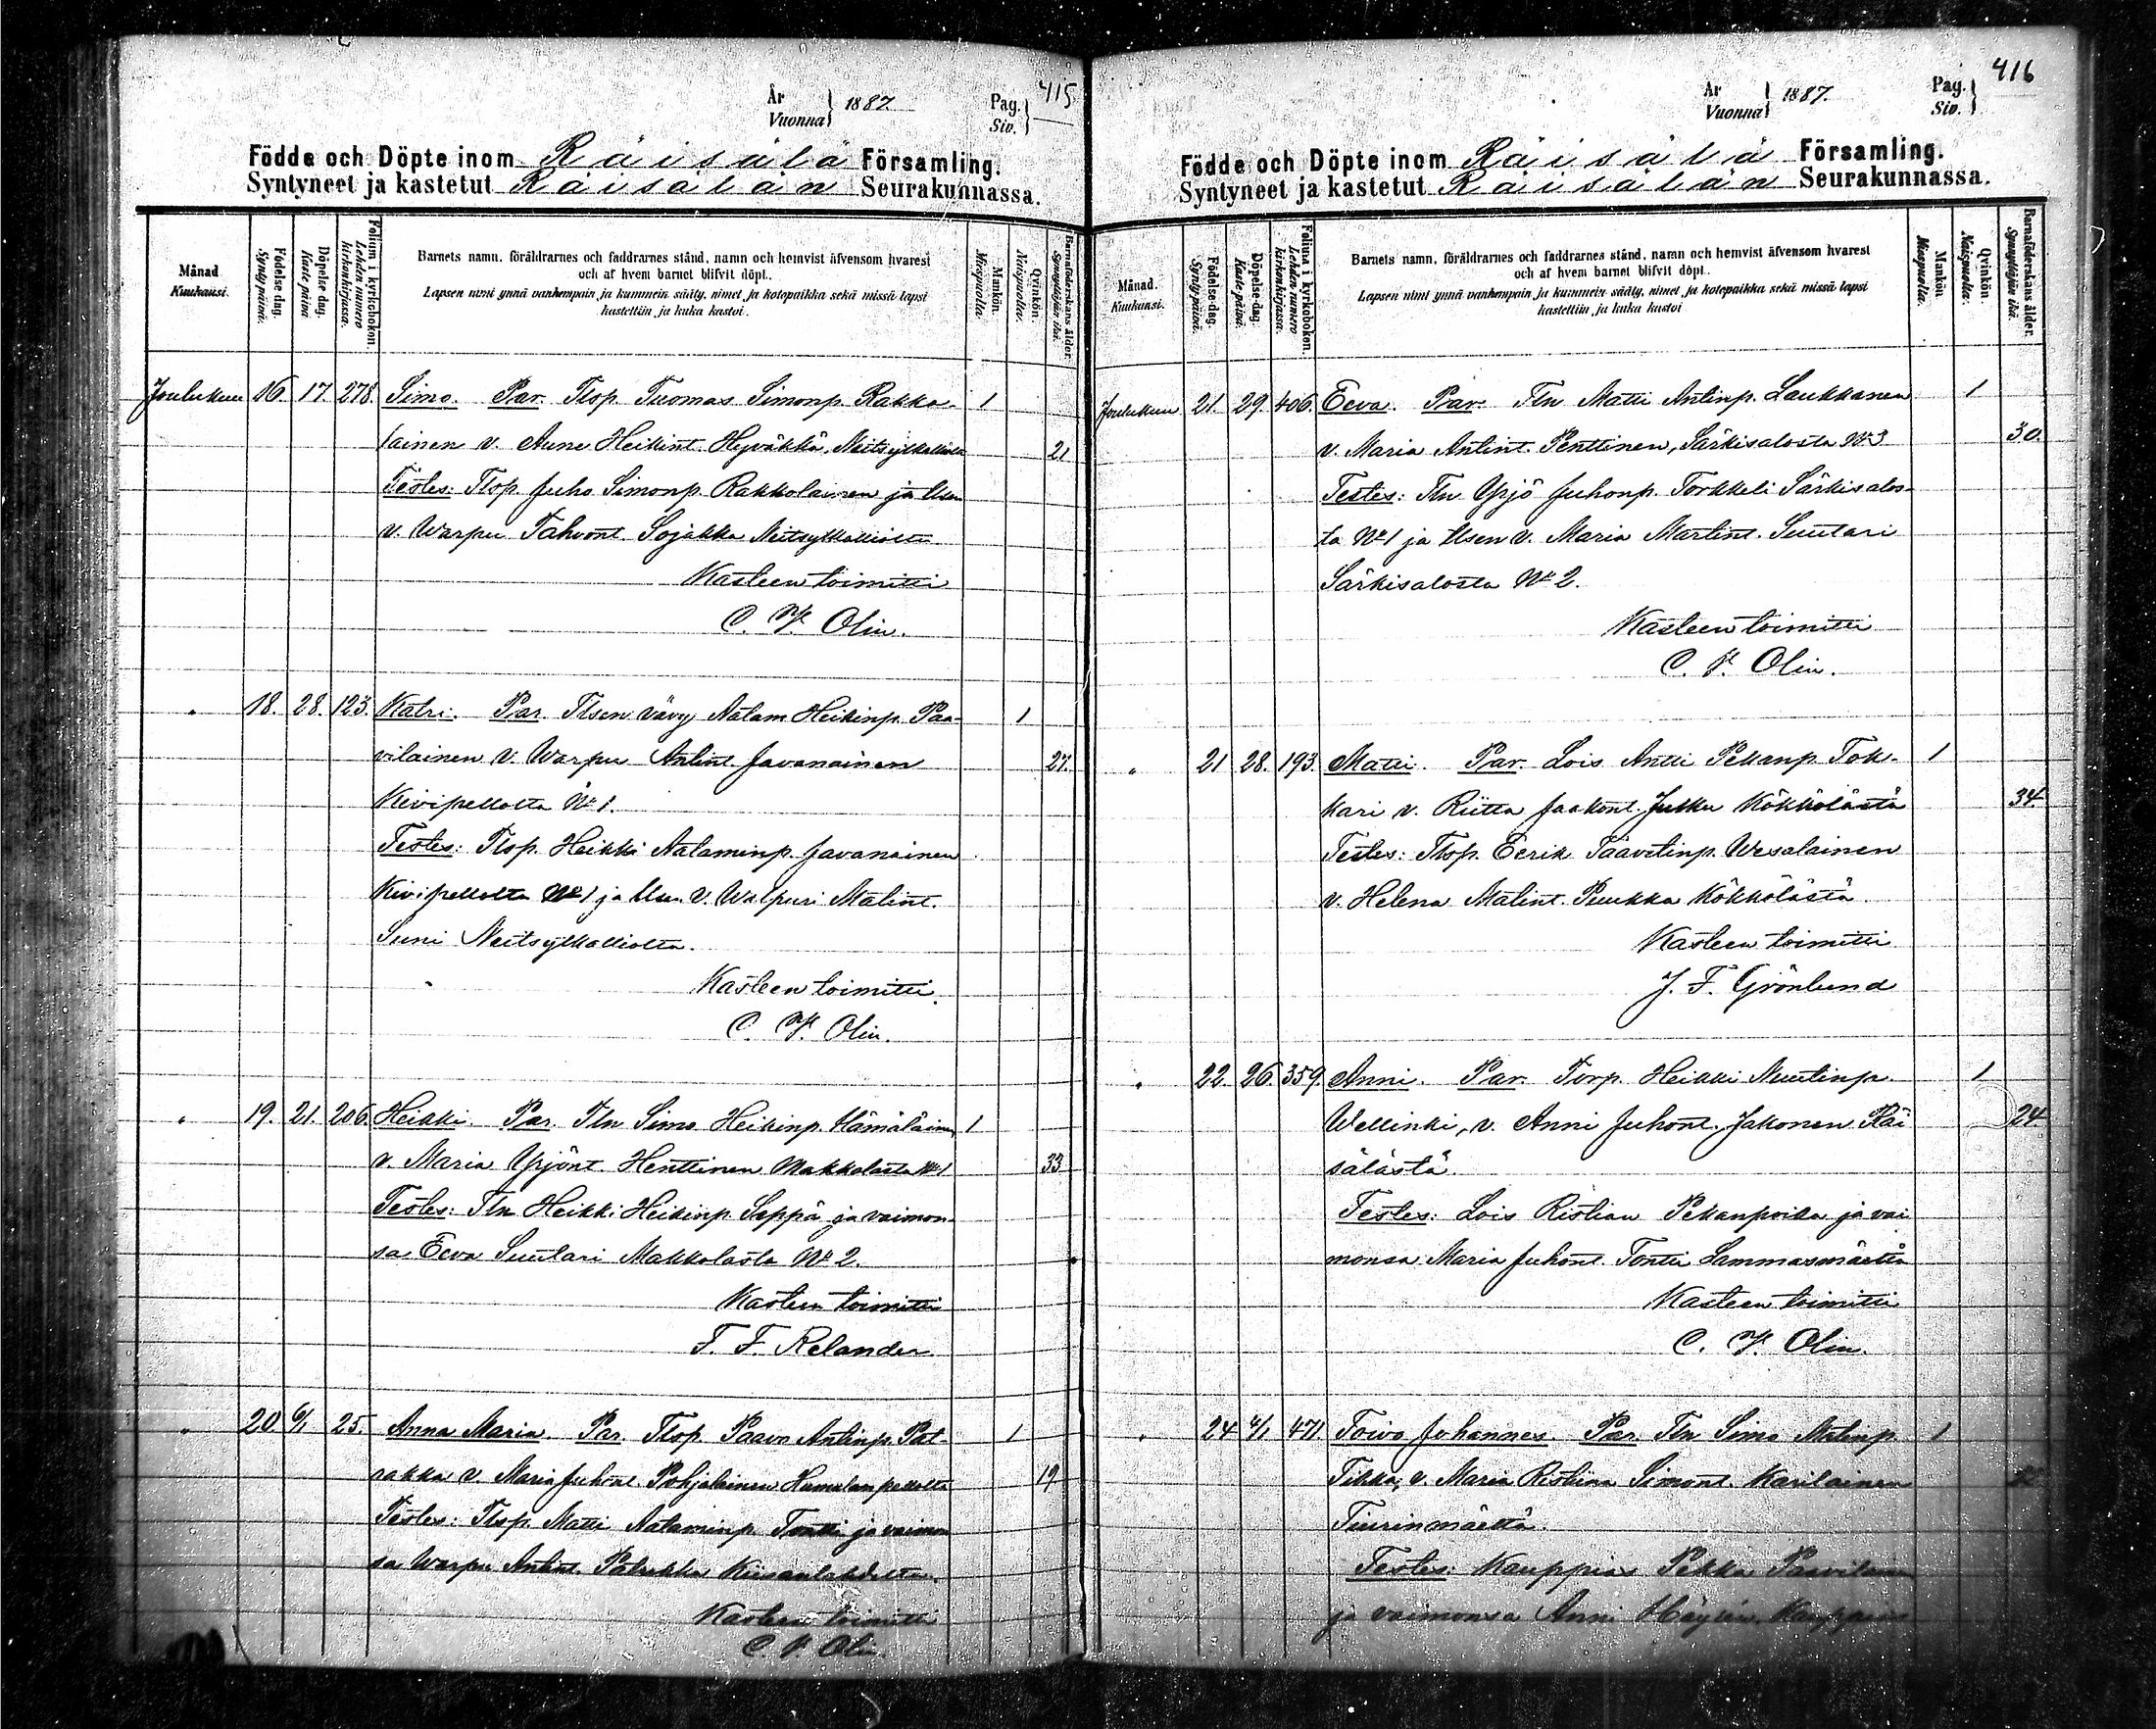 År
Vuonna 1887
Pag.
Siv. 415
Födde och Döpte inom Räisälä Församling.
Syntyneet ja kastetut Räisälän Seurakunnassa.
Månad.
Kuukausi.
Födelse dag.
Syntypäivä.
Döpelse dag.
Kaste päivä
Folium i kyrkoboken.
Lehden numero kirkonkirjassa.
Barnets namn, föräldrarnes och faddrarnes stånd, namn och hemvist äfvensom hvarest
och af hvem barnet blifvit döpt.
Lapsen nimi ynnä vanhempain ja kummein sääty, nimet ja kotopaikka sekä missä lapsi
kastettiin ja kuka kastoi.
Mankön.
Miespuolta.
Qvinkön.
Naispuolta.
Barnaföderskans ålder.
Synnyttäjän ikä.
Joulukuu 16. 17. 278. Simo. Par. Tlsp. Tuomas Simonp. Rakko- 1
lainen v. Anne Heikint. Hyväkkä, Neitsytkalliolta 21
Testes: Tlsp. Juho Simonp. Rakkolainen ja tlsen
v. Warpu Tahvont. Sojakka Neitsytkalliolta
Kasteen toimitti
C. V. Olin.
" 18. 28. 123. Katri. Par. Tlsen vävy Aatam Heikinp. Paa- 1
vilainen v. Warpu Antint. Javanainen 27.
Kivipellolta No 1.
Testes: Tlsp. Heikki Aataminp. Javanainen
Kivipellolta No 1 ja tlsen v. Walpuri Matint.
Suni Neitsytkalliolta.
Kasteen toimitti
C. V. Olin.
" 19. 21. 206. Heikki. Par. Tln Simo Heikinp. Hämäläinen 1
v. Maria Yrjönt. Henttinen Makkolasta No 1 33
Testes: Tln Heikki Heikinp. Seppä ja vaimon-
sa Eeva Suutari Makkolasta No 2.
Kasteen toimitti
F. F. Relander
" 20 6/1 25. Anna Maria. Par. Tlsp. Paavo Antinp. Pat- 1
rakka v. Maria Juhont. Pohjalainen Humalanpellolta 19
Testes: Tlsp. Matti Aataminp. Tontti ja vaimon
sa Warpu Antint. Patrakka
Kasteen toimitti
C. V. Olin.
År
Vuonna 1887.
Pag.
Siv. 416
Födde och Döpte inom Räisälä Församling.
Syntyneet ja kastetut Räisälän Seurakunnassa.
Månad.
Kuukausi.
Födelse-dag.
Syntypäivä.
Döpelse-dag.
Kaste päivä.
Folium i kyrkoboken.
Lehden numero kirkonkirjassa.
Barnets namn, föräldrarnes och faddrarnes stånd, namn och hemvist äfvensom hvarest
och af hvem barnet blifvit döpt.
Lapsen nimi ynnä vanhempain ja kummein sääty, nimet ja kotopaikka sekä missä lapsi
kastettiin ja kuka kastoi
Mankön.
Miespuolta.
Qvinkön.
Naispuolta.
Barnaföderskans ålder.
Synnyttäjän ikä.
Joulukuu 21. 29. 406. Eeva. Par. Tln Matti Antinp. Laukkanen 1
v. Maria Antint. Penttinen, Särkisalosta No 3 30.
Testes: Tln Yrjö Juhonp. Torkkeli Särkisalos-
ta No 1 ja tlsen v. Maria Martint. Suutari
Särkisalosta No 2.
Kasteen toimitti
C. V. Olin.
" 21 28. 193. Matti. Par. Lois Antti Pekanp. Tok- 1
kari v. Riitta Jaakont. Jukka Kökkölästä 34.
Testes: Tlsp. Eerik Taavetinp. Wesalainen
v. Helena Matint. Puukka Kökkölästä.
Kasteen toimitti
J. F. Grönlund
" 22. 26. 359. Anni. Par. Torp. Heikki Nuutinp. 1
Wellinki, v. Anni Juhont. Jakonen Räi 24
sälästä.
Testes: Lois Ristian Pekanpoika ja vai
monsa Maria Juhont. Tontti Lammasmäeltä
Kasteen toimitti
C. V. Olin.
" 24 4/1 471. Toivo Johannes. Par. Tln Simo Matinp. 1
Tikka, v. Maria Ristiina Simont. Karilainen
Tiurinmäeltä.
Testes: Kauppias Pekka Paavilainen
ja vaimonsa Anni Kauppias